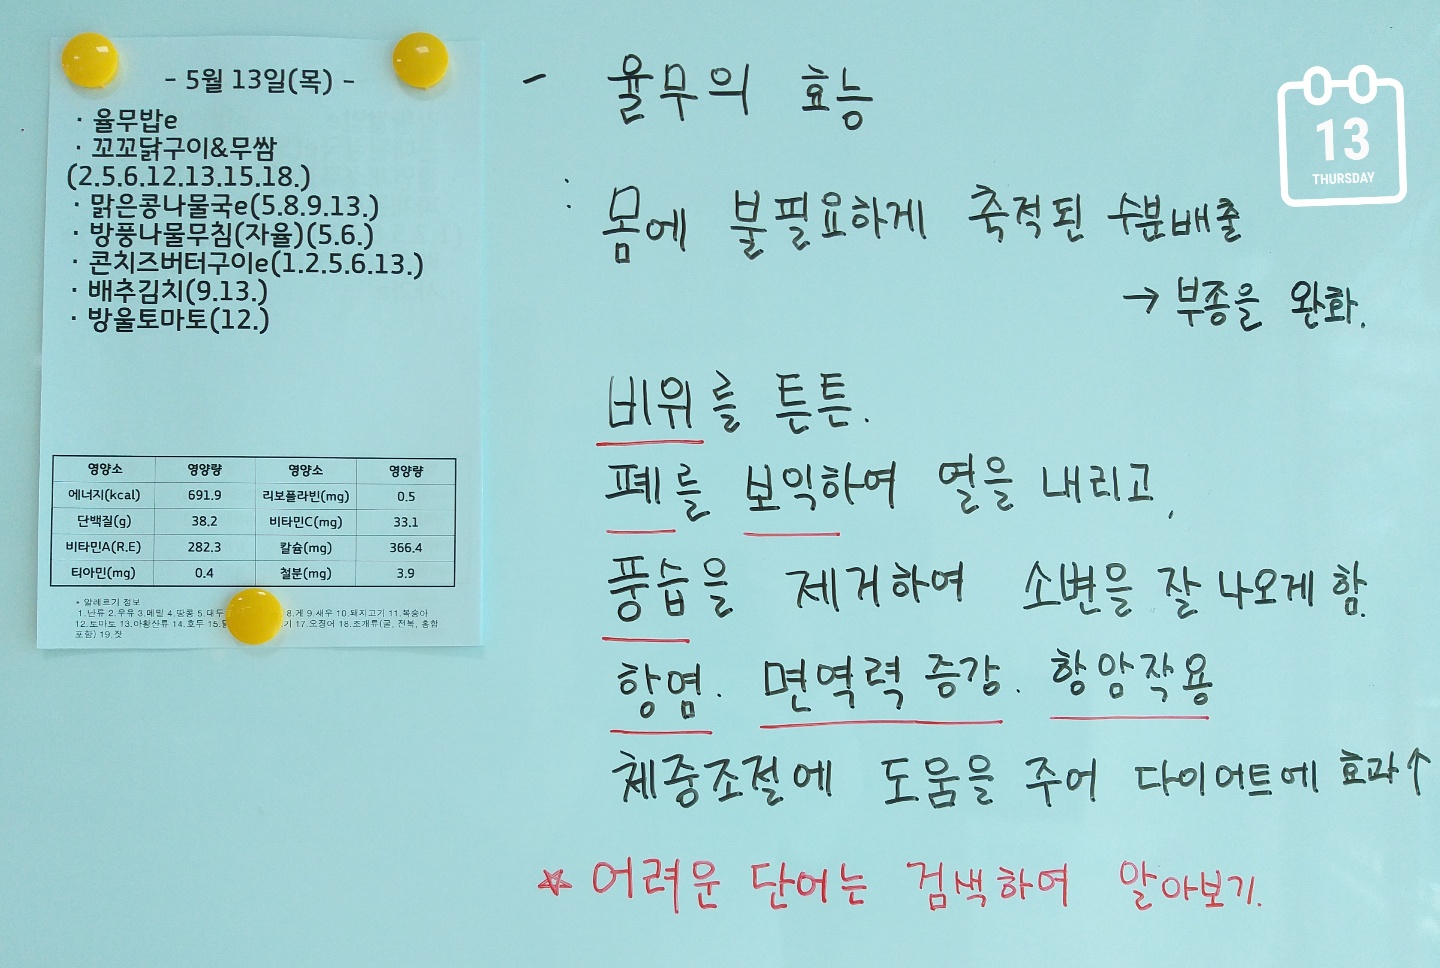 - 5월 13일(목) -
· 율무밥e
· 꼬꼬닭구이&무쌈
(2.5.6.12.13.15.18.)
· 맑은콩나물국e(5.8.9.13.)
· 방풍나물무침(자율)(5.6.)
· 콘치즈버터구이e(1.2.5.6.13.)
· 배추김치(9.13.)
· 방울토마토(12.)
영양소 영양량 영양소 영양량
에너지(kcal) 691.9 리보플라빈(mg) 0.5
단백질(g) 38.2 비타민C(mg) 33.1
비타민A(R.E) 282.3 칼슘(mg) 366.4
티아민(mg) 0.4 철분(mg) 3.9
* 알레르기 정보
1.난류 2.우유 3.메밀 4.땅콩 5.대두 8.게 9.새우 10.돼지고기 11.복숭아
12.토마토 13.아황산류 14.호두 15. 기 17.오징어 18.조개류(굴, 전복, 홍합
포함) 19.잣
- 율무의 효능
: 몸에 불필요하게 축적된 수분배출
→ 부종을 완화.
비위를 튼튼.
폐를 보익하여 열을 내리고,
풍습을 제거하여 소변을 잘 나오게 함.
항염. 면역력 증강. 항암작용
체중조절에 도움을 주어 다이어트에 효과↑
☆ 어려운 단어는 검색하여 알아보기.
13
THURSDAY